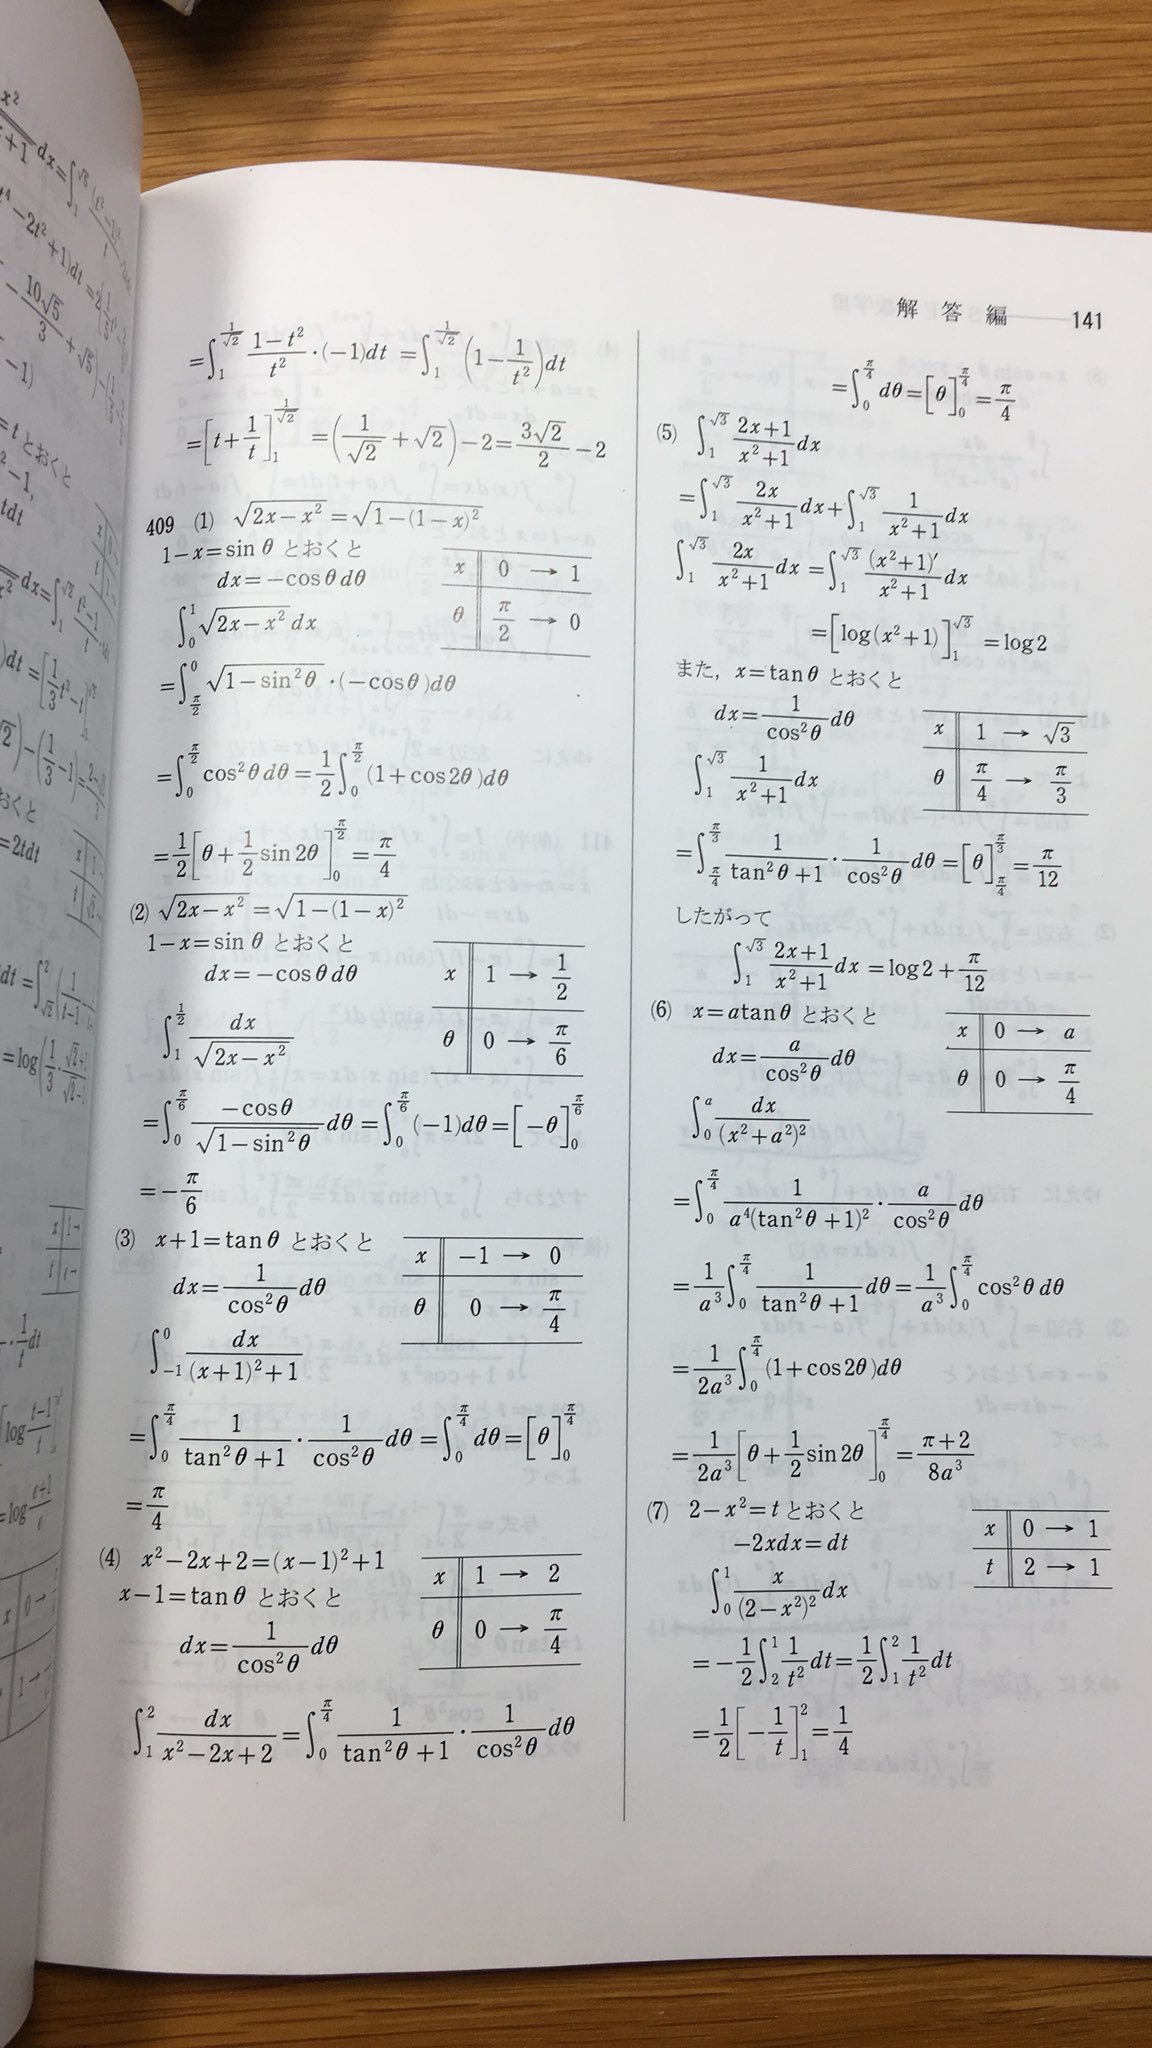 解答編 141
=∫_1^{1/√2} (1-t²)/t²・(-1)dt =∫_1^{1/√2} (1-1/t²)dt
=[t+1/t]_1^{1/√2} =(1/√2+√2)-2=3√2/2-2
409 (1) √(2x-x²)=√(1-(1-x)²)
1-x=sinθ とおくと
dx=-cosθdθ
x 0 → 1
θ π/2 → 0
∫_0^1 √(2x-x²) dx
=∫_{π/2}^0 √(1-sin²θ)・(-cosθ)dθ
=∫_0^{π/2} cos²θdθ=1/2∫_0^{π/2} (1+cos2θ)dθ
=1/2[θ+1/2 sin2θ]_0^{π/2}=π/4
(2) √(2x-x²)=√(1-(1-x)²)
1-x=sinθ とおくと
dx=-cosθdθ
x 1 → 1/2
θ 0 → π/6
∫_1^{1/2} dx/√(2x-x²)
=∫_0^{π/6} -cosθ/√(1-sin²θ) dθ=∫_0^{π/6} (-1)dθ=[-θ]_0^{π/6}
=-π/6
(3) x+1=tanθ とおくと
dx=1/cos²θ dθ
x -1 → 0
θ 0 → π/4
∫_{-1}^0 dx/((x+1)²+1)
=∫_0^{π/4} 1/(tan²θ+1)・1/cos²θ dθ=∫_0^{π/4} dθ=[θ]_0^{π/4}
=π/4
(4) x²-2x+2=(x-1)²+1
x-1=tanθ とおくと
dx=1/cos²θ dθ
x 1 → 2
θ 0 → π/4
∫_1^2 dx/(x²-2x+2)=∫_0^{π/4} 1/(tan²θ+1)・1/cos²θ dθ
=∫_0^{π/4} dθ=[θ]_0^{π/4}=π/4
(5) ∫_1^{√3} (2x+1)/(x²+1) dx
=∫_1^{√3} 2x/(x²+1) dx+∫_1^{√3} 1/(x²+1) dx
∫_1^{√3} 2x/(x²+1) dx=∫_1^{√3} (x²+1)′/(x²+1) dx
=[log(x²+1)]_1^{√3}=log2
また，x=tanθ とおくと
dx=1/cos²θ dθ
x 1 → √3
θ π/4 → π/3
∫_1^{√3} 1/(x²+1) dx
=∫_{π/4}^{π/3} 1/(tan²θ+1)・1/cos²θ dθ=[θ]_{π/4}^{π/3}=π/12
したがって
∫_1^{√3} (2x+1)/(x²+1) dx=log2+π/12
(6) x=atanθ とおくと
dx=a/cos²θ dθ
x 0 → a
θ 0 → π/4
∫_0^a dx/(x²+a²)²
=∫_0^{π/4} 1/(a⁴(tan²θ+1)²)・a/cos²θ dθ
=1/a³∫_0^{π/4} 1/(tan²θ+1) dθ=1/a³∫_0^{π/4} cos²θdθ
=1/2a³∫_0^{π/4} (1+cos2θ)dθ
=1/2a³[θ+1/2 sin2θ]_0^{π/4}=(π+2)/8a³
(7) 2-x²=t とおくと
-2xdx=dt
x 0 → 1
t 2 → 1
∫_0^1 x/(2-x²)² dx
=-1/2∫_2^1 1/t² dt=1/2∫_1^2 1/t² dt
=1/2[-1/t]_1^2=1/4